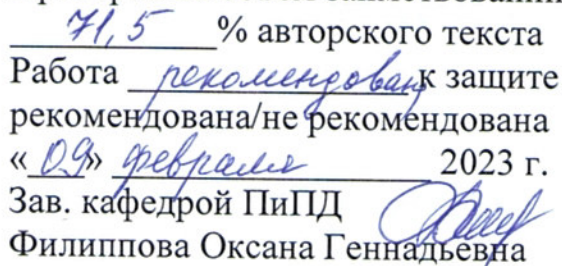 71,5 % авторского текста
Работа рекомендован к защите
рекомендована/не рекомендована
«09» февраля 2023 г.
Зав. кафедрой ПиПД
Филиппова Оксана Геннадьевна